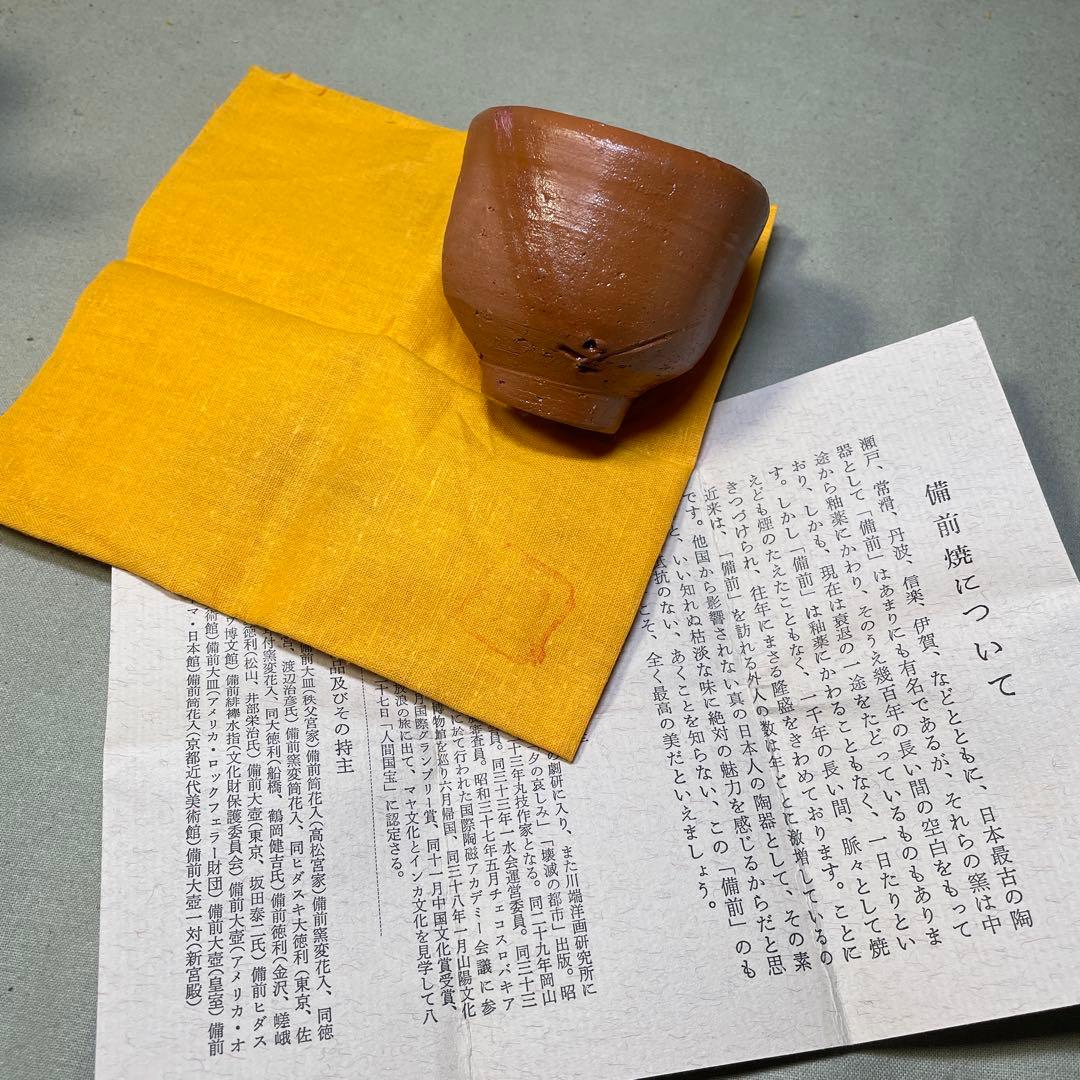 備前焼について
瀬戸、常滑、丹波、信楽、伊賀、などとともに、日本最古の陶
器として「備前」はあまりにも有名であるが、それらの窯は中
途から釉薬にかわり、そのうえ幾百年の長い間の空白をもって
おり、しかも、現在は衰退の一途をたどっているものもありま
す。しかし「備前」は釉薬にかわることもなく、一日たりとい
えども煙のたえたこともなく、一千年の長い間、脈々として焼
きつづけられ、往年にまさる隆盛をきわめております。ことに
近来は、「備前」を訪れる外人の数は年ごとに激増しているの
です。他国から影響されない真の日本人の陶器として、その素
と、いい知れぬ枯淡な味に絶対の魅力を感じるからだと思
抵抗のない、あくことを知らない、この「備前」のも
こそ、全く最高の美だといえましょう。
の劇研に入り、また川端洋画研究所に
クの哀しみ」「壊滅の都市」出版。昭
十三年丸技作家となる。同二十九年岡山
員。同三十三年一水会運営委員。同三十三
審査員。昭和三十七年五月チェコスロバキア
に於て行われた国際陶磁アカデミー会議に参
博物館を巡り六月帰国、同三十八年一月山陽文化
月国際グランプリー賞、同十一月中国文化賞受賞、
放浪の旅に出て、マヤ文化とインカ文化を見学して八
二十七日「人間国宝」に認定さる。
品及びその持主
備前大皿(秩父宮家)備前筒花入(高松宮家)備前窯変花入、同徳
宮、渡辺治彦氏)備前窯変筒花入、同ヒダスキ大徳利(東京、佐
付窯変花入、同大徳利(船橋、鶴岡健吉氏)備前徳利(金沢、嵯峨
徳利(松山、井部栄治氏)備前大壺(東京、坂田泰二氏)備前ヒダス
博文館)備前緋襷水指(文化財保護委員会)備前大壺(アメリカ・オ
術館)備前大皿(アメリカ・ロックフェラー財団)備前大壺(皇室)備前
マ・日本館)備前筒花入(京都近代美術館)備前大壺一対(新宮殿)